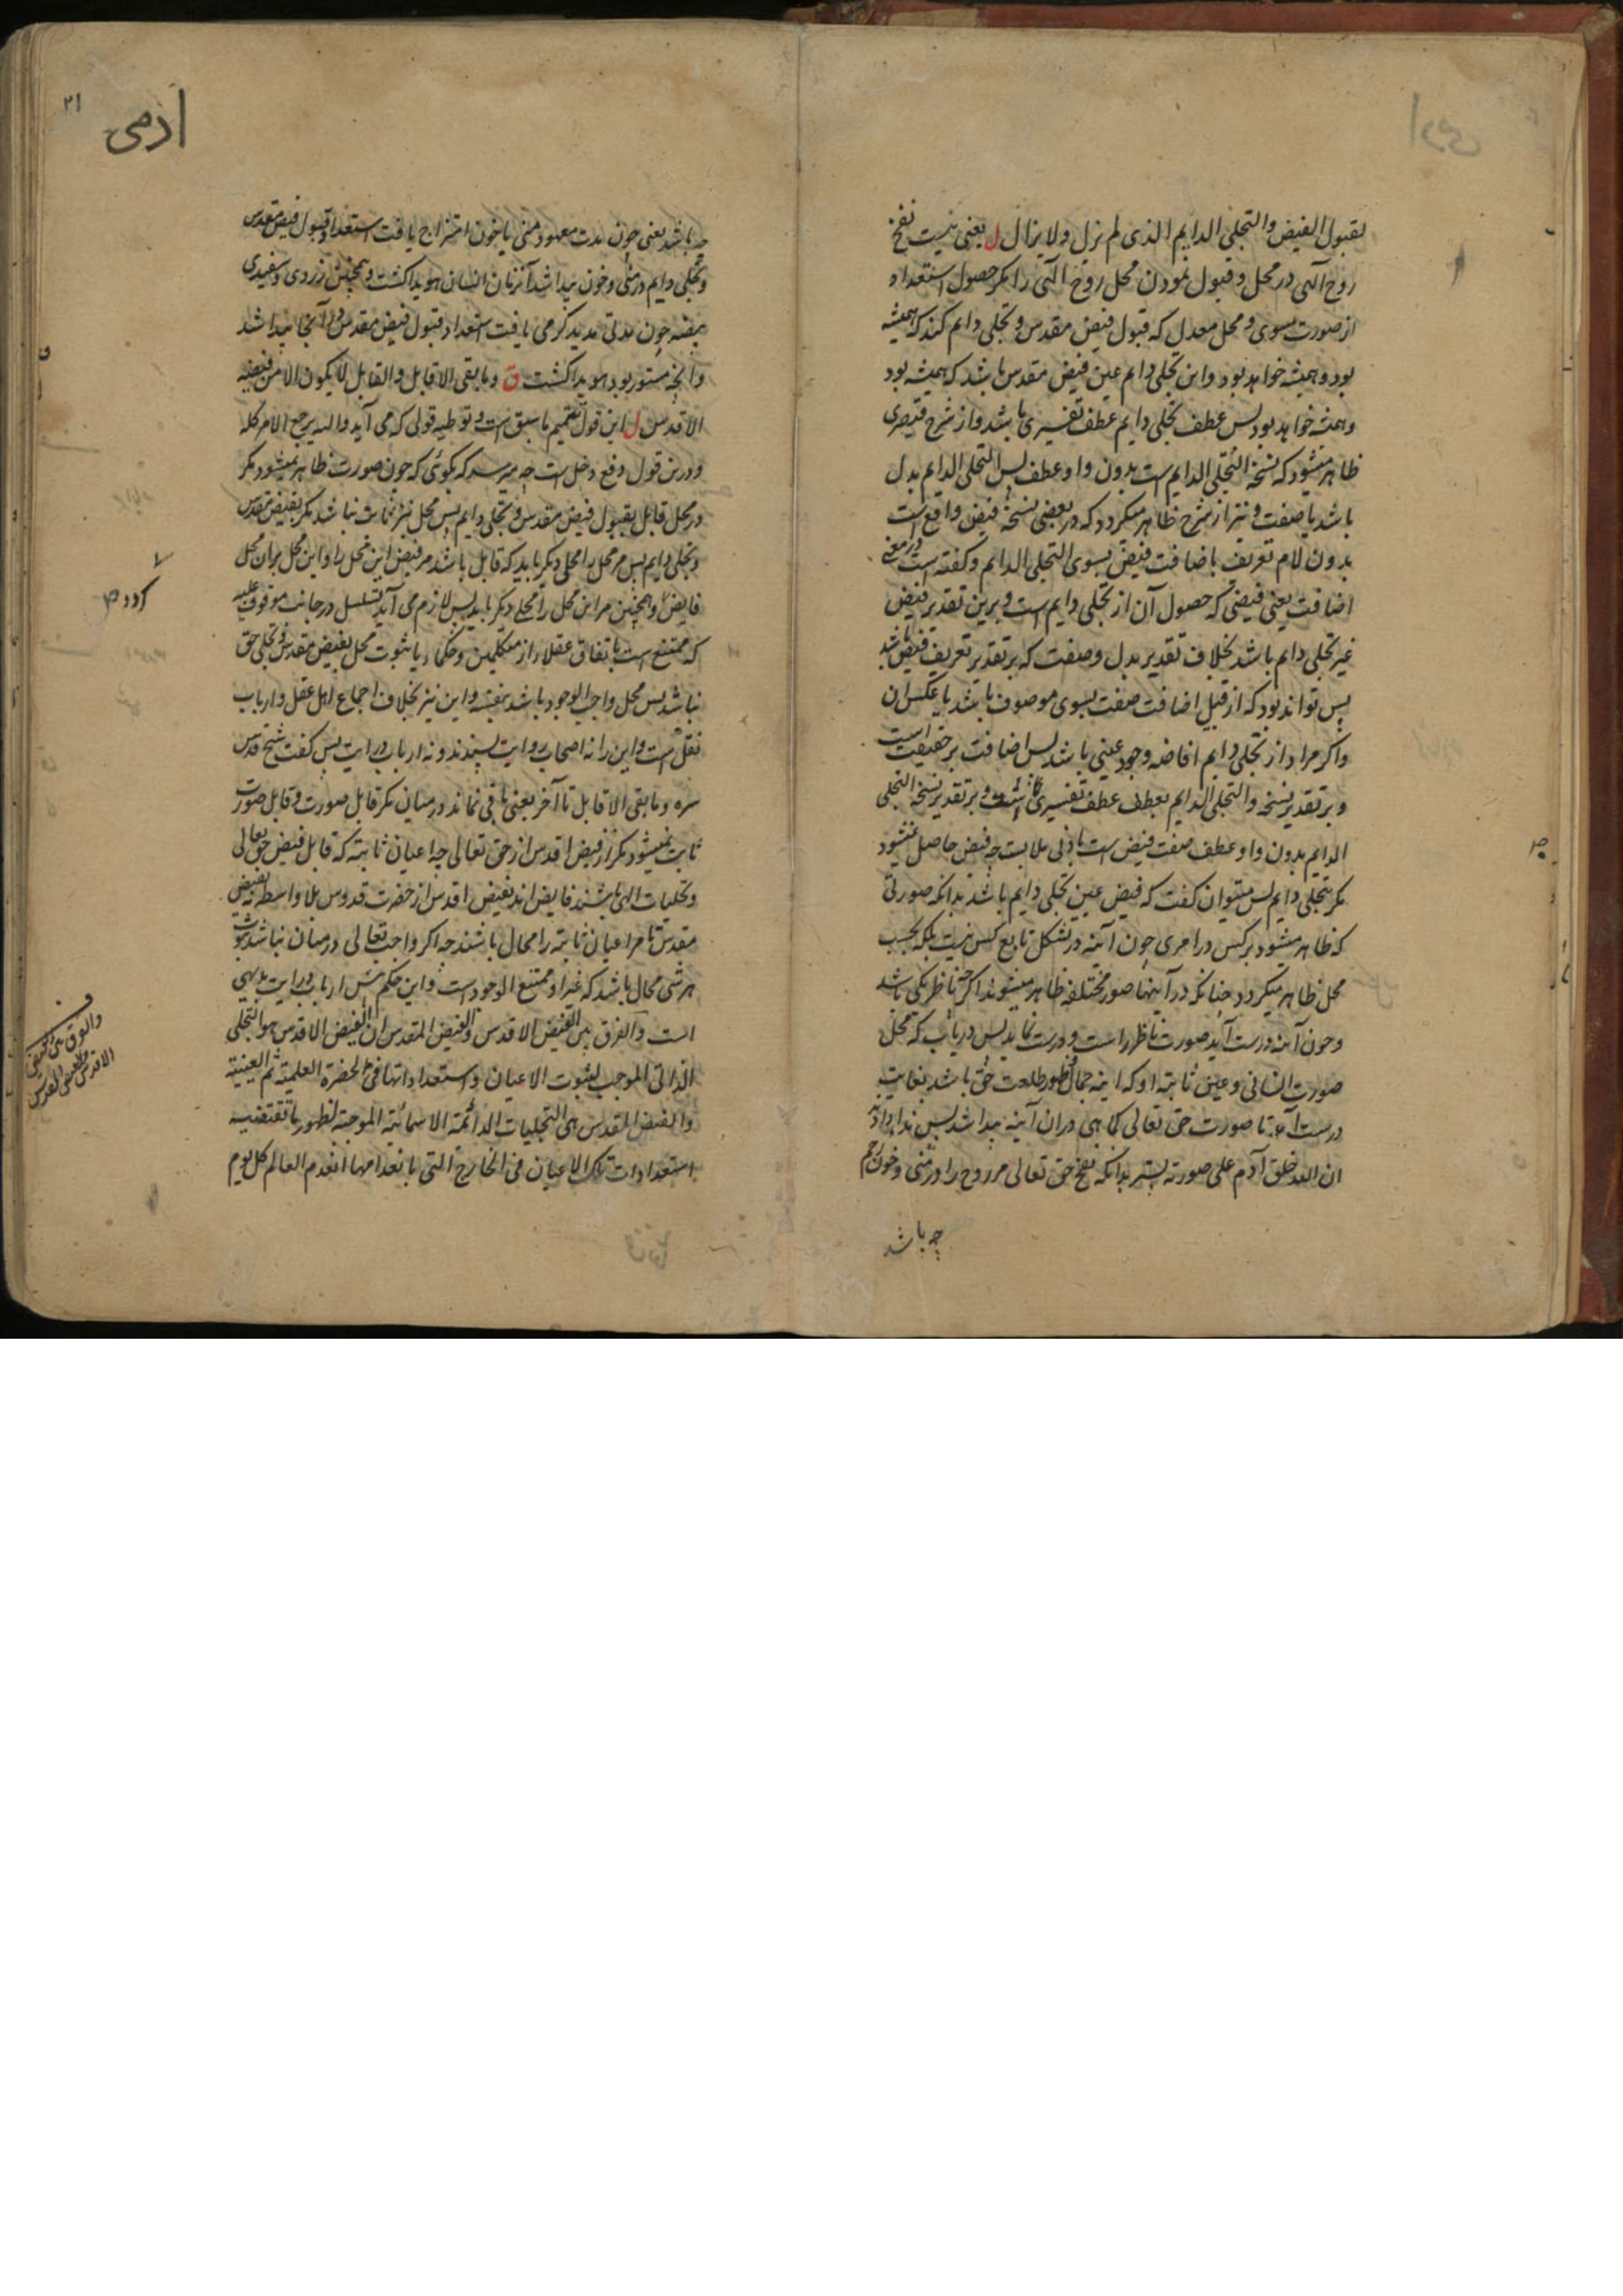 لقبول الفیض والتجلی الدایم الذی لم یزل ولایزال ل یعنی نیست نفخ
روح آلهی در محل و قبول نمودن محل روح آلهی را مکر حصول استعداد
از صورت مسوی و محل معدل که قبول فیض مقدس و تجلی دایم کند که همیشه
بود و همیشه خواهد بود واین تجلی دایم عین فیض مقدس باشد که همیشه بود
و همیشه خواهد بود پس عطف تجلی دایم عطف تفسیری باشد و از شرح قیصری
ظاهر میشود که نسخه التجلی الدایم است بدون واو عطف پس التجلی الدایم بدل
باشد یا صفت و نیز از شرح ظاهر میکردد که در بعضی نسخه فیض واقع است
بدون لام تعریف باضافت فیض بسوی التجلی الدایم و کفته است در معنی
اضافت یعنی فیضی که حصول آن از تجلی دایم است و برین تقدیر فیض
غیر تجلی دایم باشد بخلاف تقدیر بدل و صفت که بر تقدیر تعریف فیض باشد
پس تواند بود که از قبیل اضافت صفت بسوی موصوف باشد یا عکس ان
واکر مراد از تجلی دایم افاضه وجود عینی باشد پس اضافت بر حقیقت است
و بر تقدیر نسخه والتجلی الدایم بعطف عطف تفسیری باشد و بر تقدیر نسخه التجلی
الدایم بدون واو عطف صفت فیض است بادنی ملابست چه فیض حاصل نمیشود
مکر بتجلی دایم پس میتوان کفت که فیض عین تجلی دایم باشد بدانکه صورتی
که ظاهر میشود بر کس در امری چون آینه در تشکل تابع کس نیست بلکه بحسب
محل ظاهر میکردد چنانکه در آینها صور مختلفه ظاهر میشوند اکرچه ناظر یکی باشد
و چون آینه درست آید صورت ناظر راست و درست نماید پس دریاب که محل
صورت انسانی و عین ثابته او که اینه جمال ظهور طلعت حق باشد بغایت
درست آمد تا صورت حق تعالی کما هی دران آینه پیدا شد پس ندا در داد
ان الله خلق آدم علی صورته بدانکه نفخ حق تعالی مر روح را در منی و خون رحم
چه باشد
۲۱
ادمی
چه باشد یعنی چون مدت معهود منی باخون امتزاج یافت استعداد قبول فیض مقدس
و تجلی دایم در منی و خون پیدا شد آنزمان انسان هویدا کشت و همچنین زردی و سفیدی
بیضه چون مدتی مدید کرمی یافت استعداد قبول فیض مقدس در آنجا پیدا شد
وانچه مستور بود هویدا کشت ق وما بقی الا قابل والقابل لا یکون الا من فیضه
الاقدس ل این قول تتمیم ماسبق است و توطیه قولی که می آید والیه یرجع الامر کله
و درین قول دفع دخل است چه میرسد که بکوئی که چون صورت ظاهر نمیشود مکر
در محل قابل بقبول فیض مقدس و تجلی دایم پس محل نیز ثابت نباشد مکر بفیض مقدس
و تجلی دایم پس مر محل را محلی دیکر باید که قابل باشد مر فیض این محل را و این محل بران محل
فایض و همچنین مر این محل را محلی دیکر باید پس لازم می آید تسلسل در جانب موقوف علیه
که ممتنع است باتفاق عقلاء از متکلمین و حکماء یا ثبوت محل بفیض مقدس و تجلی حق
نباشد پس محل واجب الوجود باشد بنفسه و این نیز بخلاف اجماع اهل عقل و ارباب
نقل است و این را نه اصحاب روایت پسندند و نه ارباب درایت پس کفت شیخ قدس
سره وما بقی الا قابل تا آخر یعنی باقی نماند درمیان مکر قابل صورت و قابل صورت
ثابت نمیشود مکر از فیض اقدس از حق تعالی چه اعیان ثابته که قابل فیض حق تعالی
و تجلیات الهی باشند فایض اند بفیض اقدس از حضرت قدوس بلا واسطه نه بفیض
مقدس تا مر اعیان ثابته را محال باشند چه اکر واجب تعالی درمیان نباشد ثبوت
هر شی محال باشد که غیر او ممتنع الوجود است و این حکم پیش ارباب درایت بدیهی
است والفرق بین الفیض الاقدس والفیض المقدس ان الفیض الاقدس هو التجلی
الذاتی الموجب لثبوت الاعیان واستعداداتها فی الحضرة العلمیة ثم العینیة
والفیض المقدس هی التجلیات الدائمة الاسمائیة الموجبة لظهور ما تقتضیه
استعدادات تلک الاعیان فی الخارج التی بانعدامها انعدم العالم کل یوم
والفرق بین الفیض
الاقدس والفیض المقدس